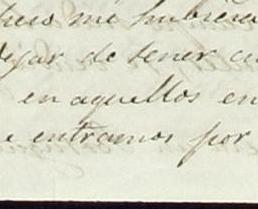 me hubiera
dejar de tener cu
en aquellos en
e entramos por